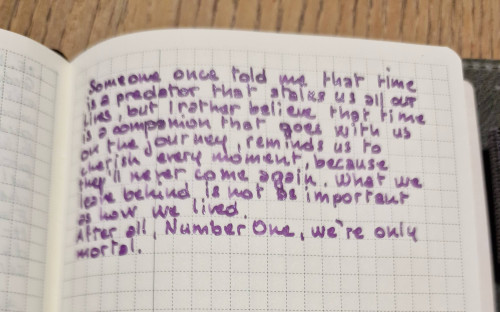 Someone once told me that time
is a predator that stalks us all our
lives, but I rather believe that time
is a companion that goes with us
on the journey, reminds us to
cherish every moment, because
they'll never come again. What we
leave behind is not as important
as how we lived.
After all, Number One, we're only
mortal.